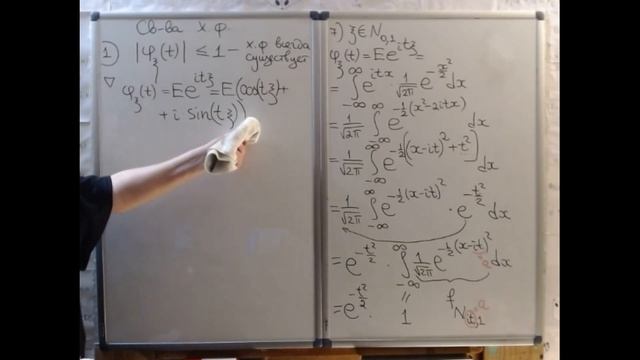 Св-ва х.ф.
① |φ_ξ(t)| ≤ 1 – х.ф всегда существует
▽ φ_ξ(t) = Ee^{itξ} = E(cos(tξ) +
+ i sin(tξ))
7) ξ ∈ N_{0,1}
φ_ξ(t) = Ee^{itξ} =
= ∫_{-∞}^{∞} e^{itx} · 1/√2π e^{-x²/2} dx
= 1/√2π ∫_{-∞}^{∞} e^{-1/2(x²-2itx)} dx
= 1/√2π ∫_{-∞}^{∞} e^{-1/2((x-it)²+t²)} dx
= 1/√2π ∫_{-∞}^{∞} e^{-1/2(x-it)²} · e^{-t²/2} dx
= e^{-t²/2} · ∫_{-∞}^{∞} 1/√2π e^{-1/2(x-it)²} dx
= e^{-t²/2} · 1
"
f_{N_{it,1}}